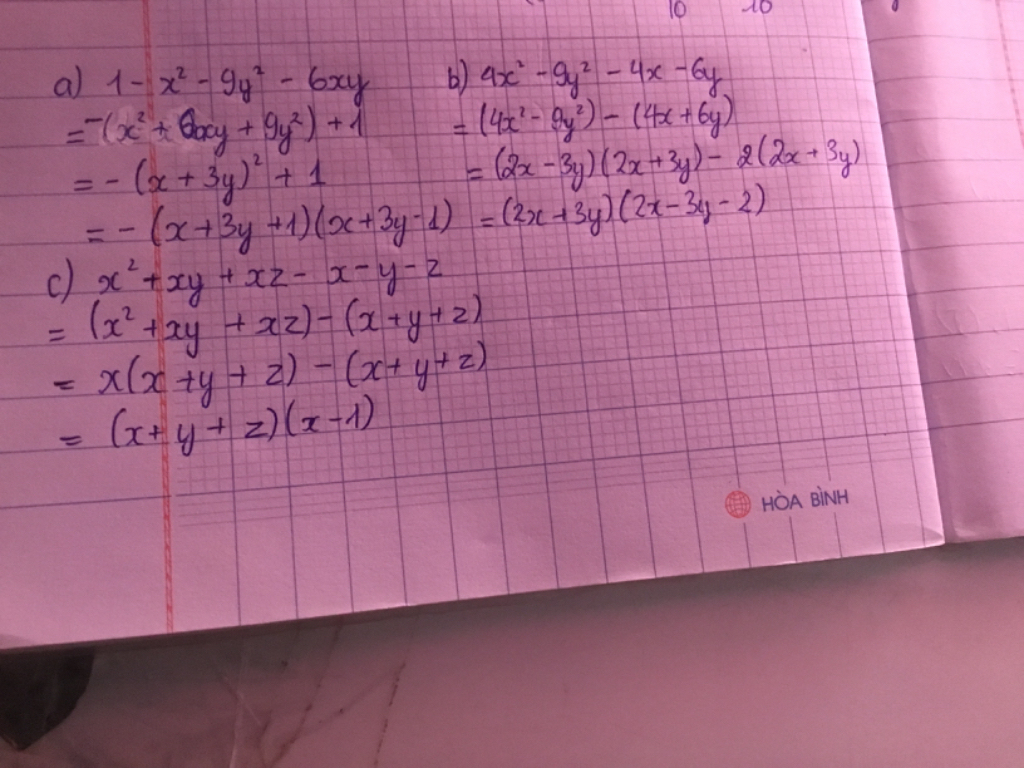 10 10
a) 1 - x² - 9y² - 6xy
= -(x² + 6xy + 9y²) + 1
= - (x + 3y)² + 1
= - (x + 3y + 1)(x + 3y - 1)
b) 4x² - 9y² - 4x - 6y
= (4x² - 9y²) - (4x + 6y)
= (2x - 3y)(2x + 3y) - 2(2x + 3y)
= (2x + 3y)(2x - 3y - 2)
c) x² + xy + xz - x - y - z
= (x² + xy + xz) - (x + y + z)
= x(x + y + z) - (x + y + z)
= (x + y + z)(x - 1)
HÒA BÌNH